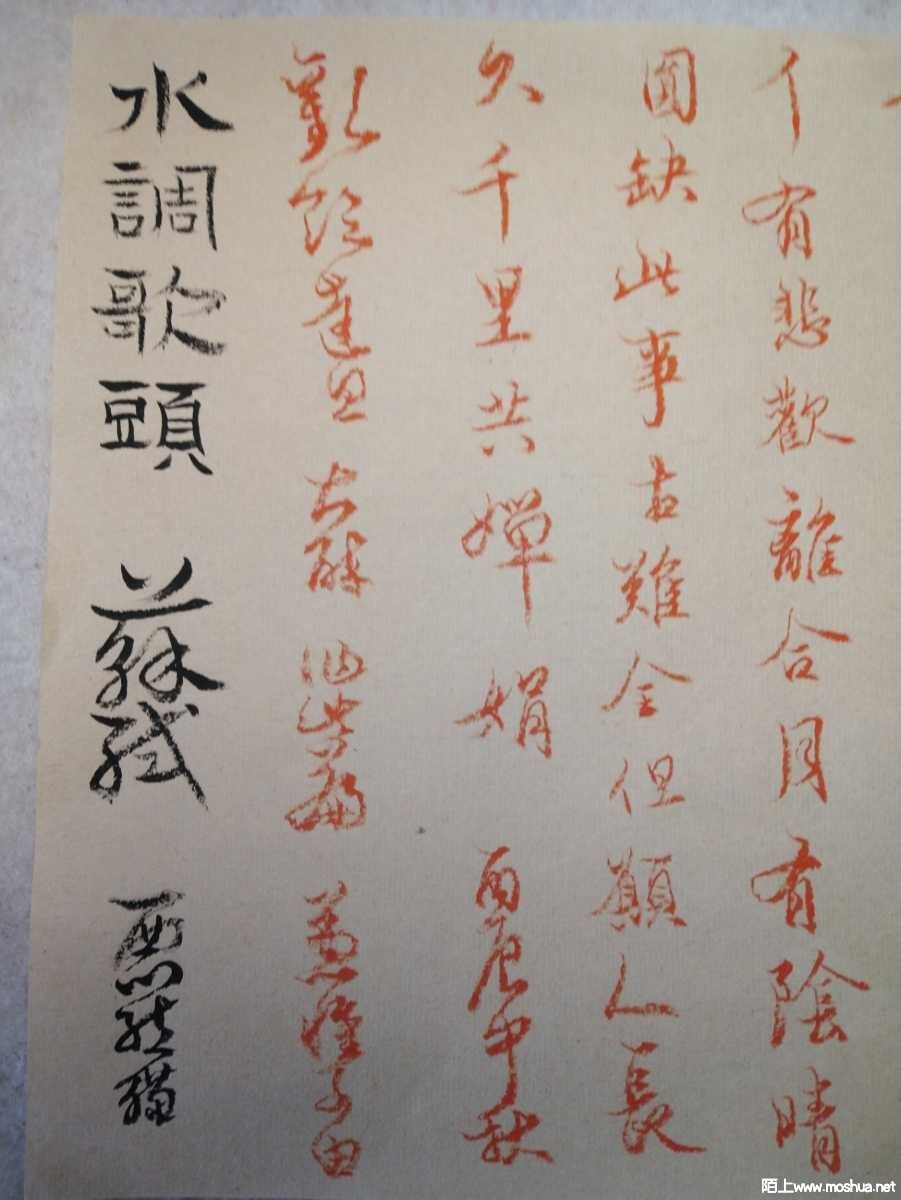 人有悲歡離合月有陰晴
圓缺此事古難全但願人長
久千里共嬋娟 丙辰中秋
歡飲達旦 大醉 作此篇 兼懷子由
水調歌頭 蘇軾 西熊貓
陌上www.moshua.net